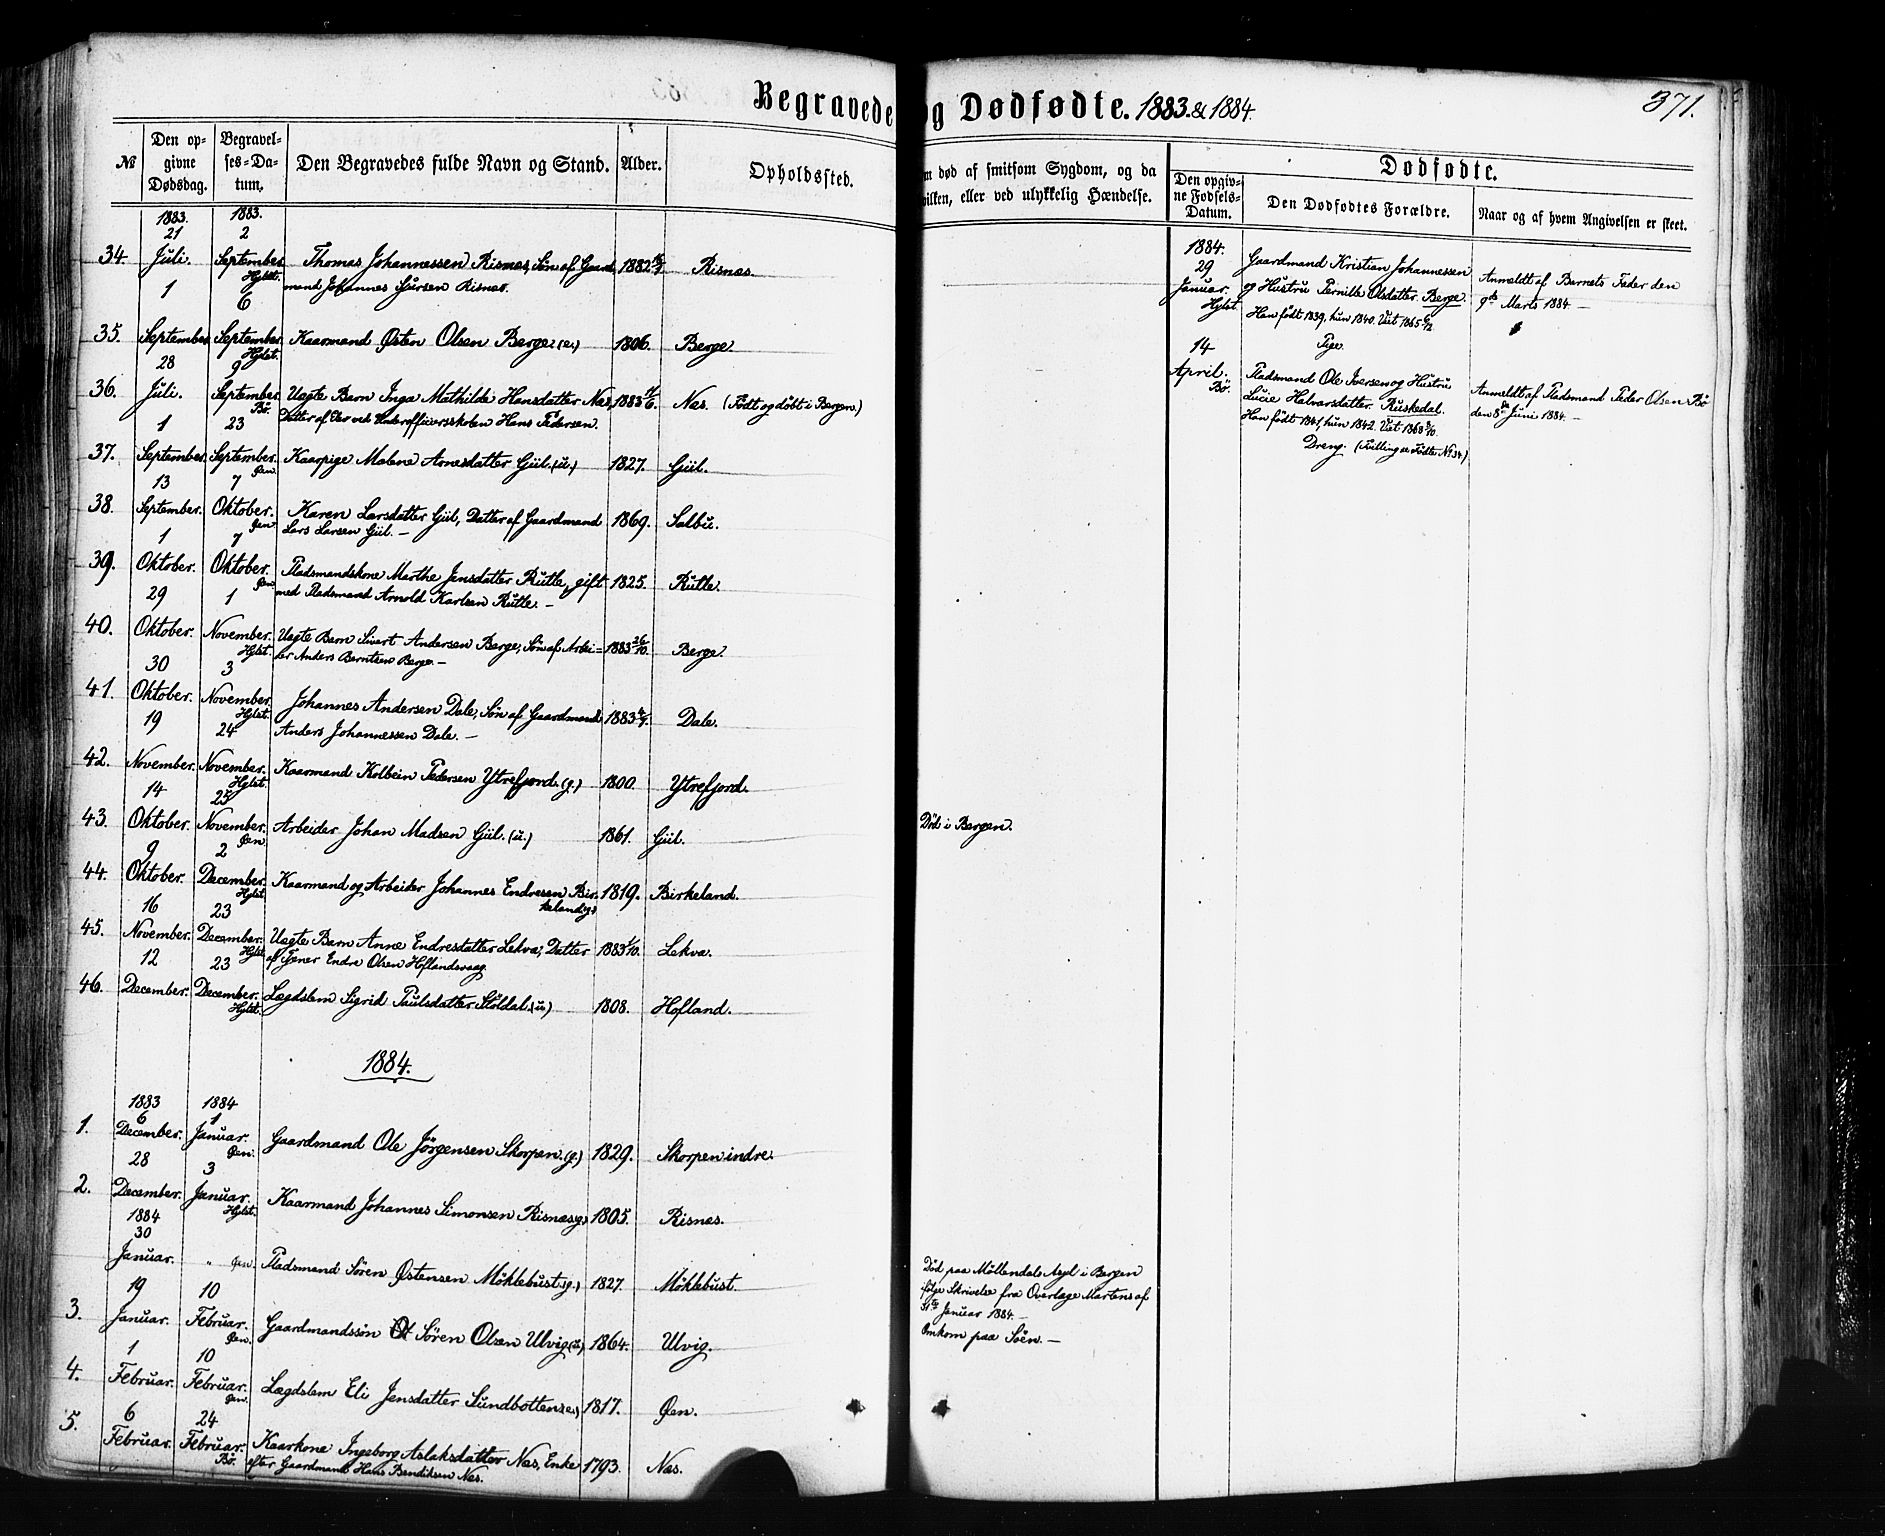 Begravede og Dødfødte. 1883 & 1884.
371.
№
Den opgivne Dødsdag.
Begravelses-Datum.
Den Begravedes fulde Navn og Stand.
Alder.
Opholdssted.
m død af smitsom Sygdom, og da
vilken, eller ved ulykkelig Hændelse.
Dødfødte.
Den opgivne Fødsels-Datum.
Den Dødfødtes Forældre.
Naar og af hvem Angivelsen er skeet.
1883. 1883.
21 2
34. Juli. September. Hylst. Thomas Johannessen Risnes, Søn af Gaard 1882 Risnes.
mand Johannes Sjursen Risnes.
1 6
35. September. September. Hylst. Kaarmand Østen Olsen Berge. (e.) 1806. Berge.
28 9
36. Juli. September. Bø. Uægte Barn Inga Mathilde Hansdatter Næs, 1883 Næs. (Født og døbt i Bergen.)
Datter af Elev ved Underofficiersskolen Hans Pedersen.
1 23
37. September. September. Øen. Kaarpige Malene Arnesdatter Giil. (u.) 1827. Giil.
13 7
38. September. Oktober. Øen. Karen Larsdatter Giil, Datter af Gaardmand 1869. Salbu.
Lars Larsen Giil. —
1 7
39. Oktober. Oktober. Øen. Pladsmandskone Marthe Jensdatter Rutle, gift 1825. Rutle.
med Pladsmand Arnold Karlsen Rutle. —
29 1
40. Oktober. November. Hylst. Uægte Barn Sivert Andersen Berge, Søn af Arbei= 1883 26/10. Berge.
der Anders Berntsen Berge. —
30 3
41. Oktober. November. Hylst. Johannes Andersen Dale, Søn af Gaardmand 1883 Dale.
Anders Johannessen Dale. —
19 24
42. November. November. Hylst. Kaarmand Kolbein Pedersen Ytrefjord. (g.) 1800. Ytrefjord.
14 25
43. Oktober. November. Øen. Arbeider Johan Madsen Giil. (u.) 1861. Giil. Død i Bergen.
9 2
44. Oktober. December. Hylst. Kaarmand og Arbeider Johannes Endresen Bir- 1819. Birkeland.
keland (g)
16 23
45. November. December. Hylst. Uægte Barn Anne Endresdatter Lekva, Datter 1883 1/10. Lekva.
af Tjener Endre Olsen Hoflandsvaag.
12 23
46. December. December. Hylst. Lægdslem Sigrid Paulsdatter Støldal. (u.) 1808. Hofland.
1884.
1883 1884
6 1
1. December. Januar. Øen. Gaardmand Ole Jørgensen Skorpen. (g.) 1829. Skorpen indre.
28 3
2. December. Januar. Hylst. Kaarmand Johannes Simonsen Risnes (g.) 1805. Risnes.
1884
30
Januar. " Øen. Pladsmand Søren Østensen Møklebust (g.) 1827. Møklebust. Død paa Møllendals Asyl i Bergen
ifølge Skrivelse fra Overlæge Martens af
31te Januar 1884. —
19 10
3. Januar. Februar. Øen. Gaardmandssøn Søren Olsen Ulvig (u.) 1864. Ulvig. Omkom paa Søen. —
1 10
4. Februar. Februar. Øen. Lægdslem Eli Jensdatter Sundbotten (e.) 1817. Øen.
6 24
5. Februar. Februar. Bø. Kaarkone Ingeborg Aslaksdatter Næs, Enke 1793. Næs.
efter Gaardmand Hans Bendiksen Næs.
1884.
29
Januar. Hylst. Gaardmand Kristian Johannessen
og Hustru Pernille Olsdatter. Berge.
Han født 1839, hun 1840. Viet 1865
Pige.
Anmeldt af Barnets Fader den
9de Marts 1884. —
14
April. Bø. Pladsmand Ole Iversen og Hustru
Lucie Halvarsdatter. Ruskedal.
Han født 1841, hun 1842. Viet 1868
Dreng. (Tvilling se Fødte № 34.)
Anmeldt af Pladsmand Peder Olsen Bø
den 8de Juni 1884. —